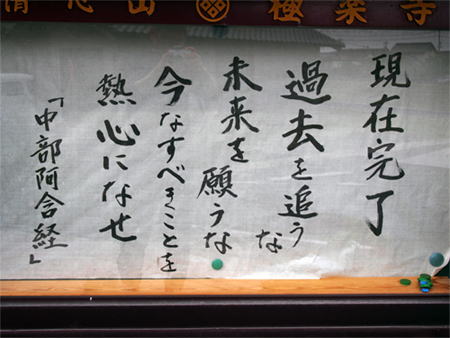 山 極楽寺
現在完了
過去を追うな
未来を願うな
今なすべきことを
熱心になせ
「中部阿含経」